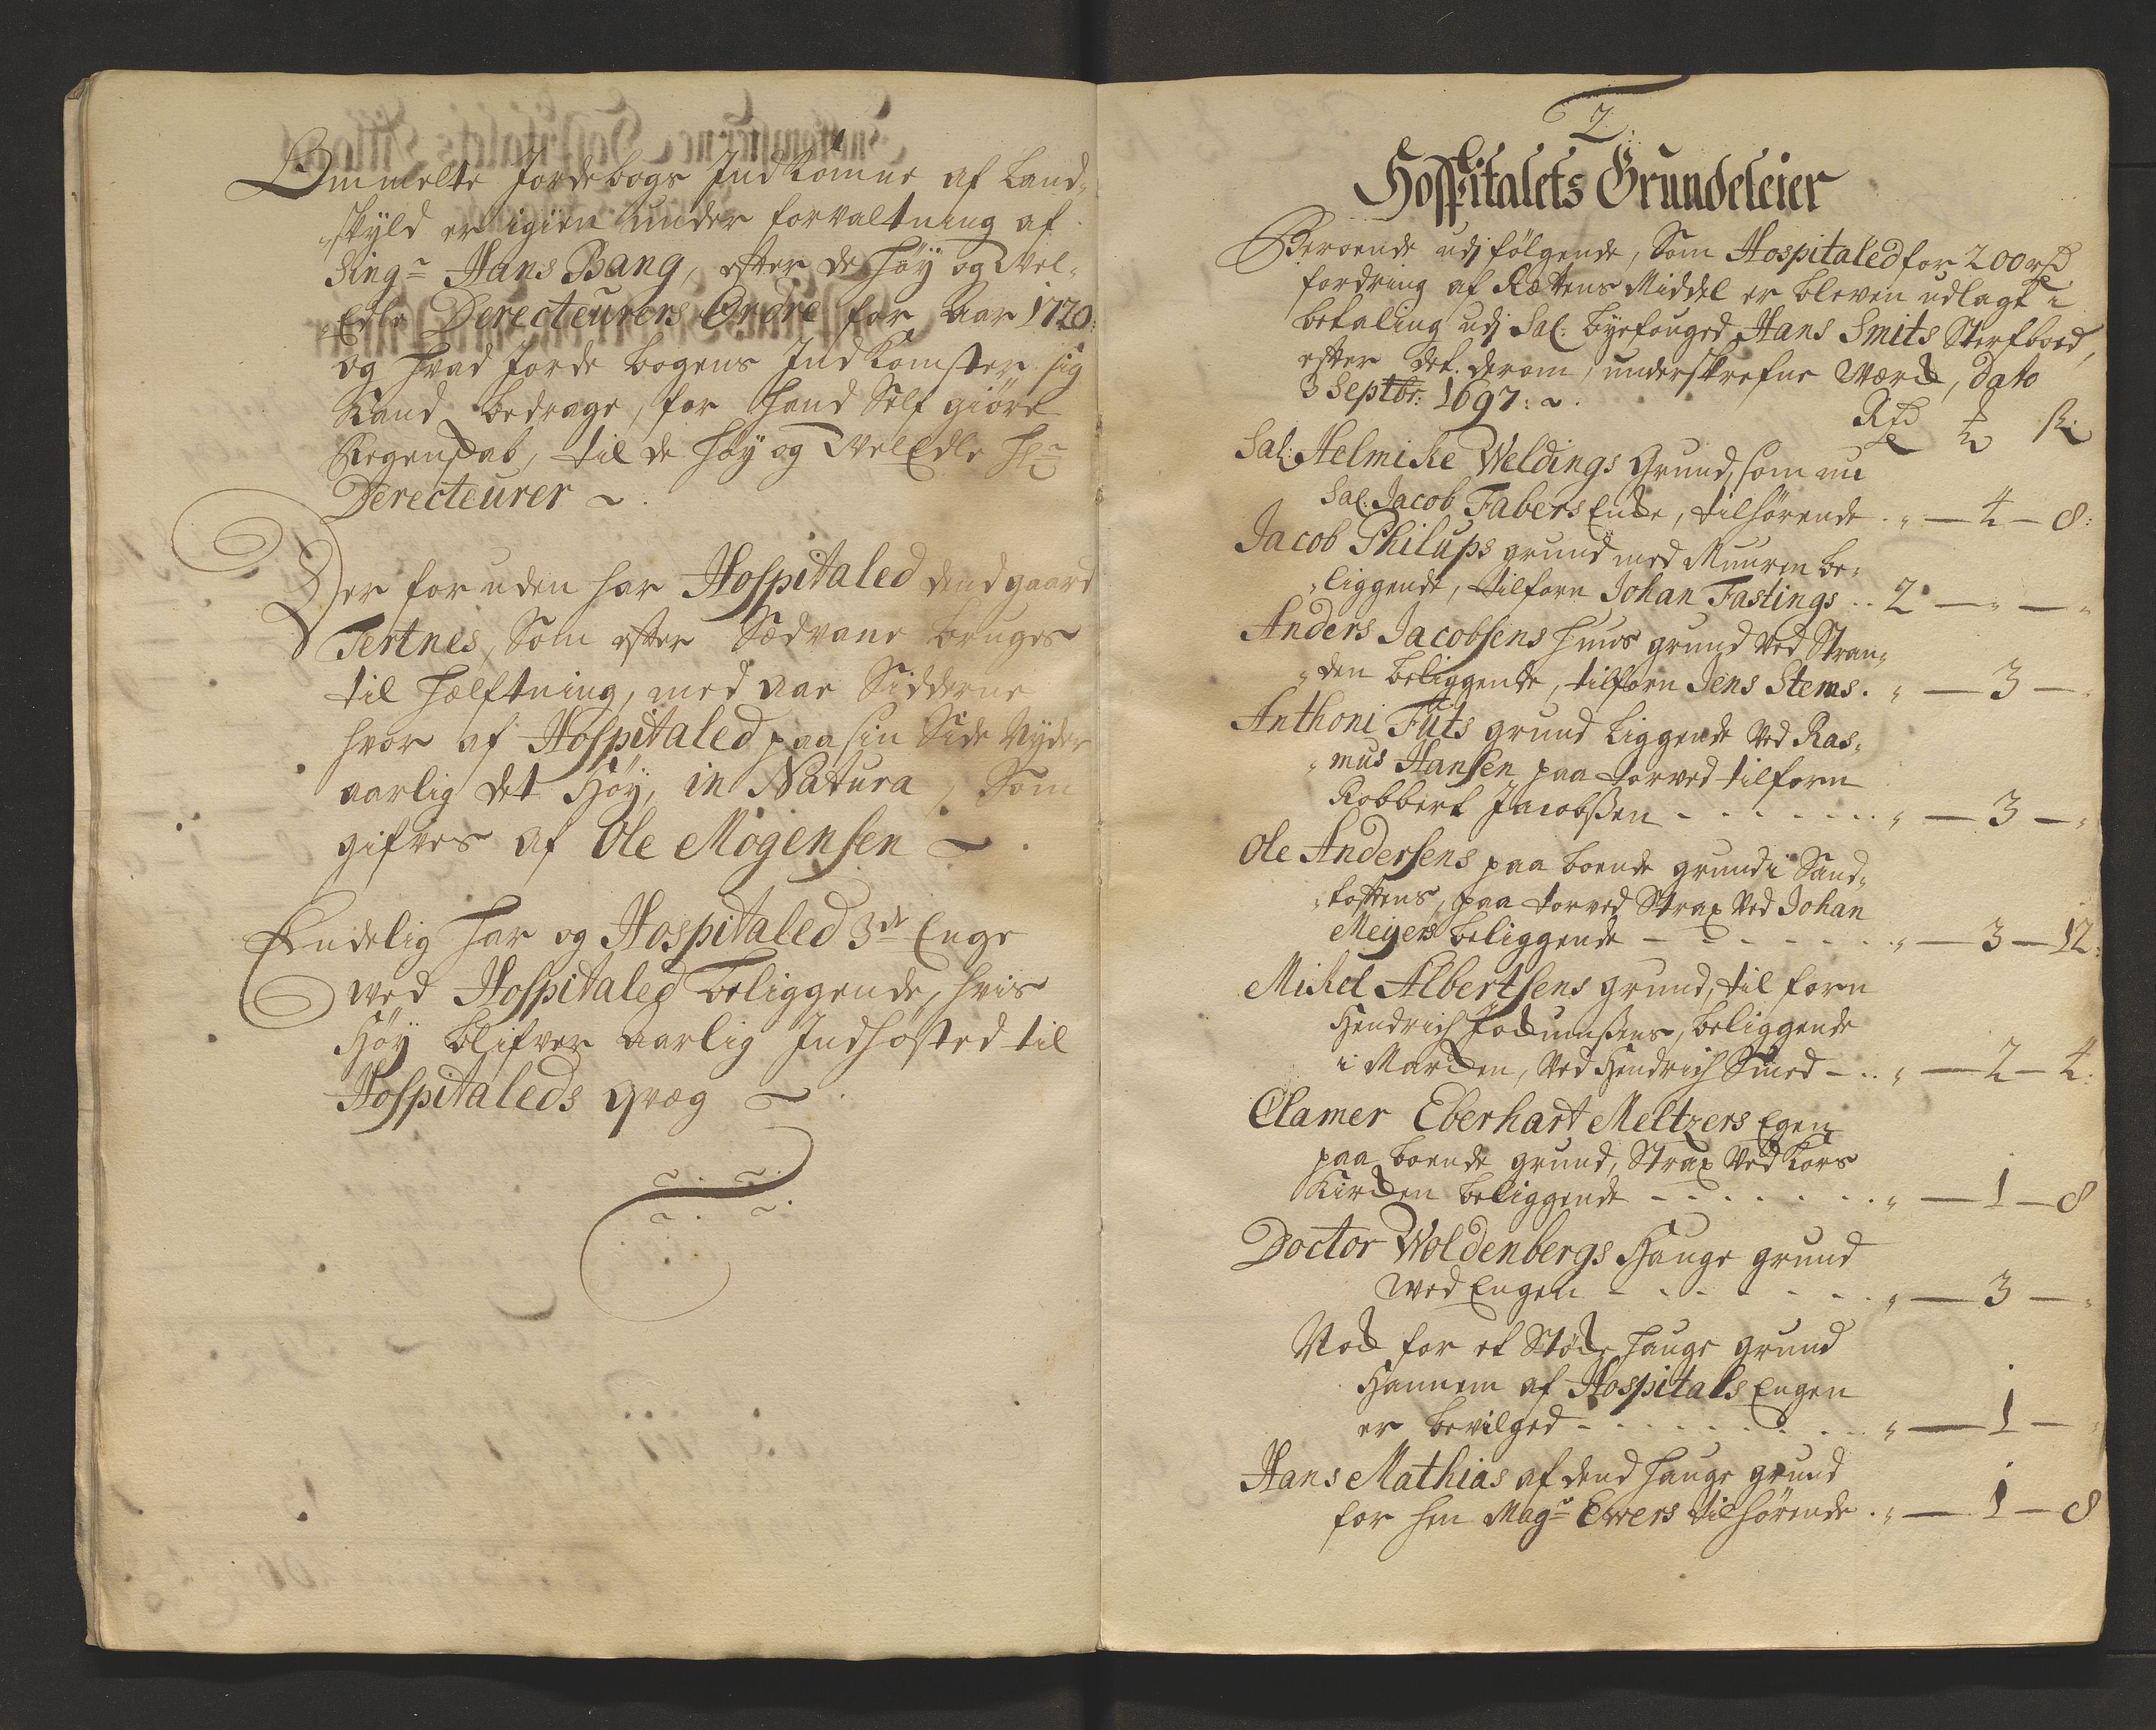 Ommelte Jordebogs Indkomme af Land-
skyld er igien under forvaltning af
Singr Hans Bang, efter de høy og Vel-
Edle Derecteurers Ordre for Aar 1720:
og hvad Jorde bogens Indkomster sig
Kand bedrage, for hand Self giöre
Regenskab, til de høy og VelEdle Hr
Derecteurer ~.
Der foruden har Hospitaled dend gaard
Tertnes, Som efter Sædvane bruges
til Hælftning, med Aae Sidderne
hvor af Hospitaled paa sin Side Nyder
aarlig det Höy, in Natura, Som
gifves af Ole Mogensen ~.
Endelig har og Hospitaled 3de Enge
ved Hospitaled beliggende, hvis
Höy blifver aarlig Indhösted til
Hospitaleds qvæg ~.
2.
Hospitalets Grundeleier
Beroende udj fölgende, Som Hospitaled for 200 rd
fordring af Rettens Middel er bleven udlagt i
betaling udj Sal: byefouged Hans Smits Sterfboed,
efter det derom, underskrefne Værck, dato
3 Septbr: 1697: ~.
Rd ß
Sal: Helmike Weldings Grund, som nu
Sal: Jacob Fabers Encke, tilhörende . „ — 4 — 8:
Jacob Philups grund med Muuren be-
liggende, tilforn Johan Fastings .. 2 — „ — „
Anders Jacobsens huus grund ved Stran-
den beliggende, tilforn Jens Stems . „ — 3 — „
Anthoni Füts grund liggende ved Ras-
mus Hansen paa torved tilforn
Robbert Jacobsen - - - - „ — 3 — „
Ole Andersens paa boende grund i Sand-
tofttens, paa torved Strax ved Johan
Meijers beliggende - - - - „ — 3 — 12:
Mikel Albertsens grund, til forn
Hendrich beliggende
i Marcken, ved Hendrich Smed - .. „ — 2 — 4:
Clamer Eberhart Meltzers Egen
paa boende grund, Strax ved Kors
Kircken beliggende - - - - „ — 1 — 8
Doctor Woldenbergs Hauge grund
ved Engen - - - - „ — 3 — „
Nock for et Stöcke hauge grund
Hannem af Hospitals Engen
er bevilged - - - - „ — 1 —
Hans Mathias af dend hauge grund
for hen Magr Ewers tilhörende . „ — 1 — 8